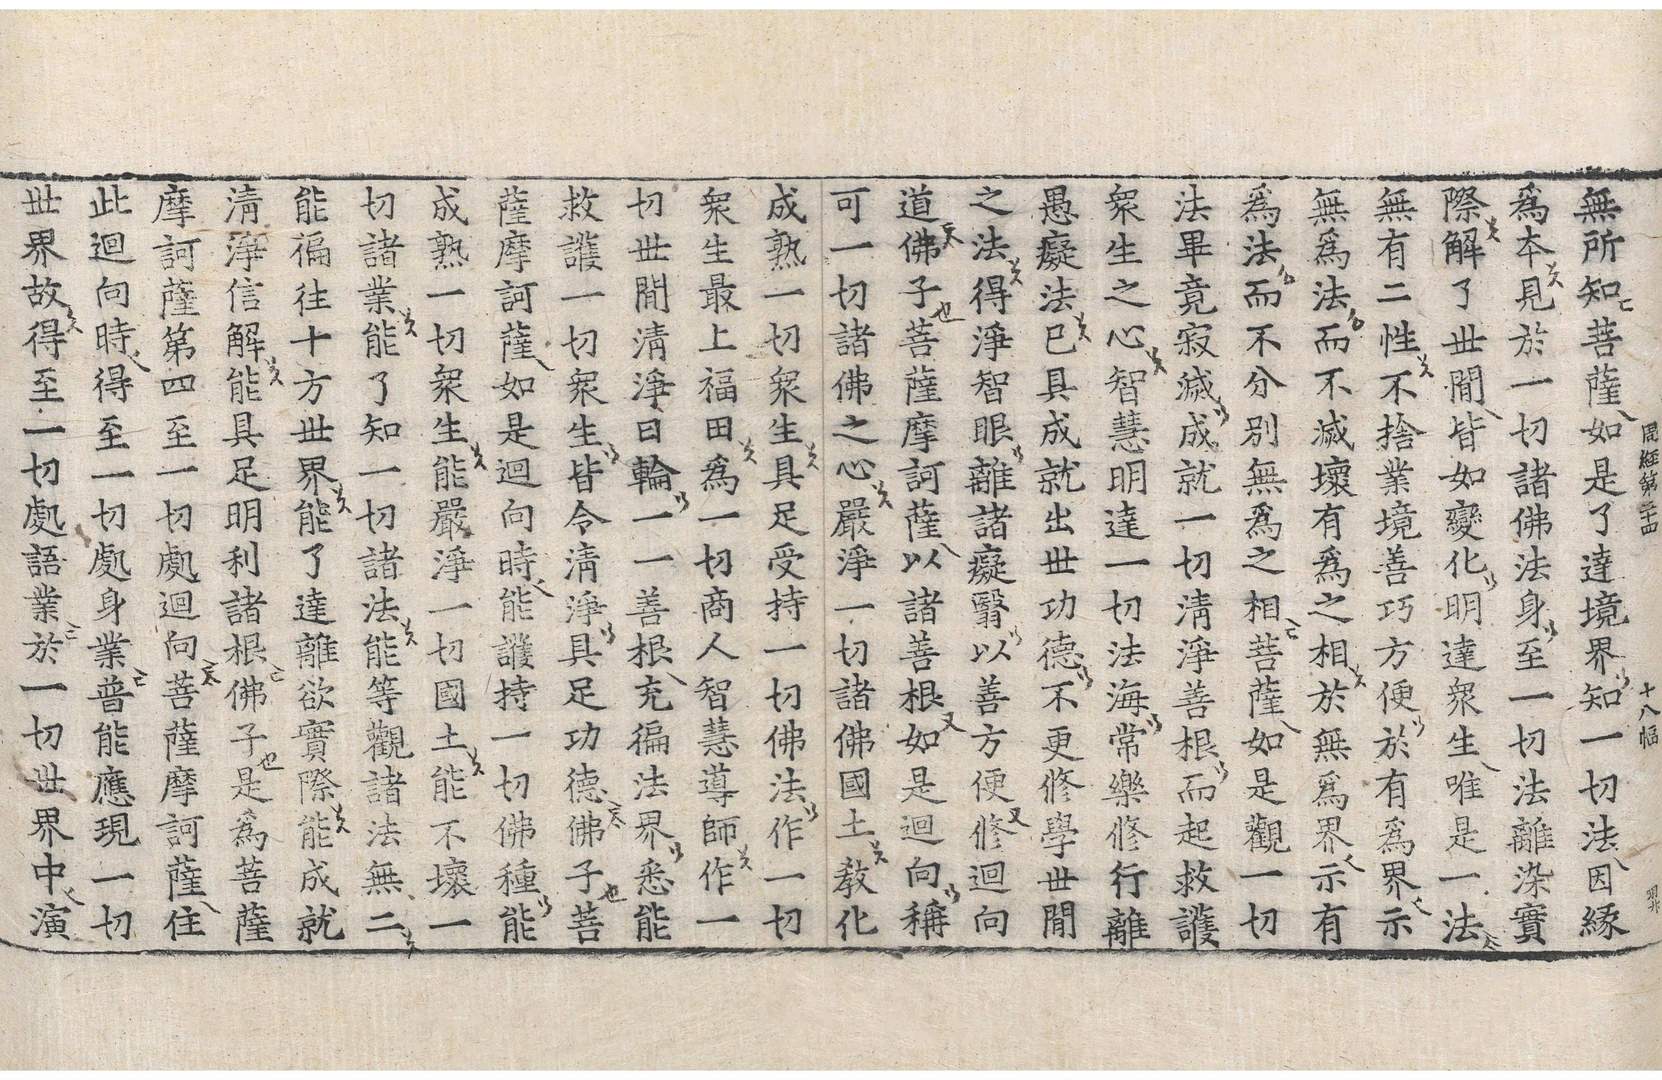 周經第二十四
十八幅
無所知菩薩如是了達境界知一切法因緣
爲本見於一切諸佛法身至一切法離染實
際解了世間皆如變化明達衆生唯是一法
無有二性不捨業境善巧方便於有爲界示
無爲法而不滅壞有爲之相於無爲界示有
爲法而不分別無爲之相菩薩如是觀一切
法畢竟寂滅成就一切清淨善根而起救護
衆生之心智慧明達一切法海常樂修行離
愚癡法已具成就出世功德不更修學世間
之法得淨智眼離諸癡翳以善方便修迴向
道佛子菩薩摩訶薩以諸善根如是迴向稱
可一切諸佛之心嚴淨一切諸佛國土教化
成熟一切衆生具足受持一切佛法作一切
衆生最上福田爲一切商人智慧導師作一
切世間清淨日輪一一善根充徧法界悉能
救護一切衆生皆令清淨具足功德佛子菩
薩摩訶薩如是迴向時能護持一切佛種能
成熟一切衆生能嚴淨一切國土能不壞一
切諸業能了知一切諸法能等觀諸法無二
能徧往十方世界能了達離欲實際能成就
清淨信解能具足明利諸根佛子是爲菩薩
摩訶薩第四至一切處迴向菩薩摩訶薩住
此迴向時得至一切處身業普能應現一切
世界故得至一切處語業於一切世界中演